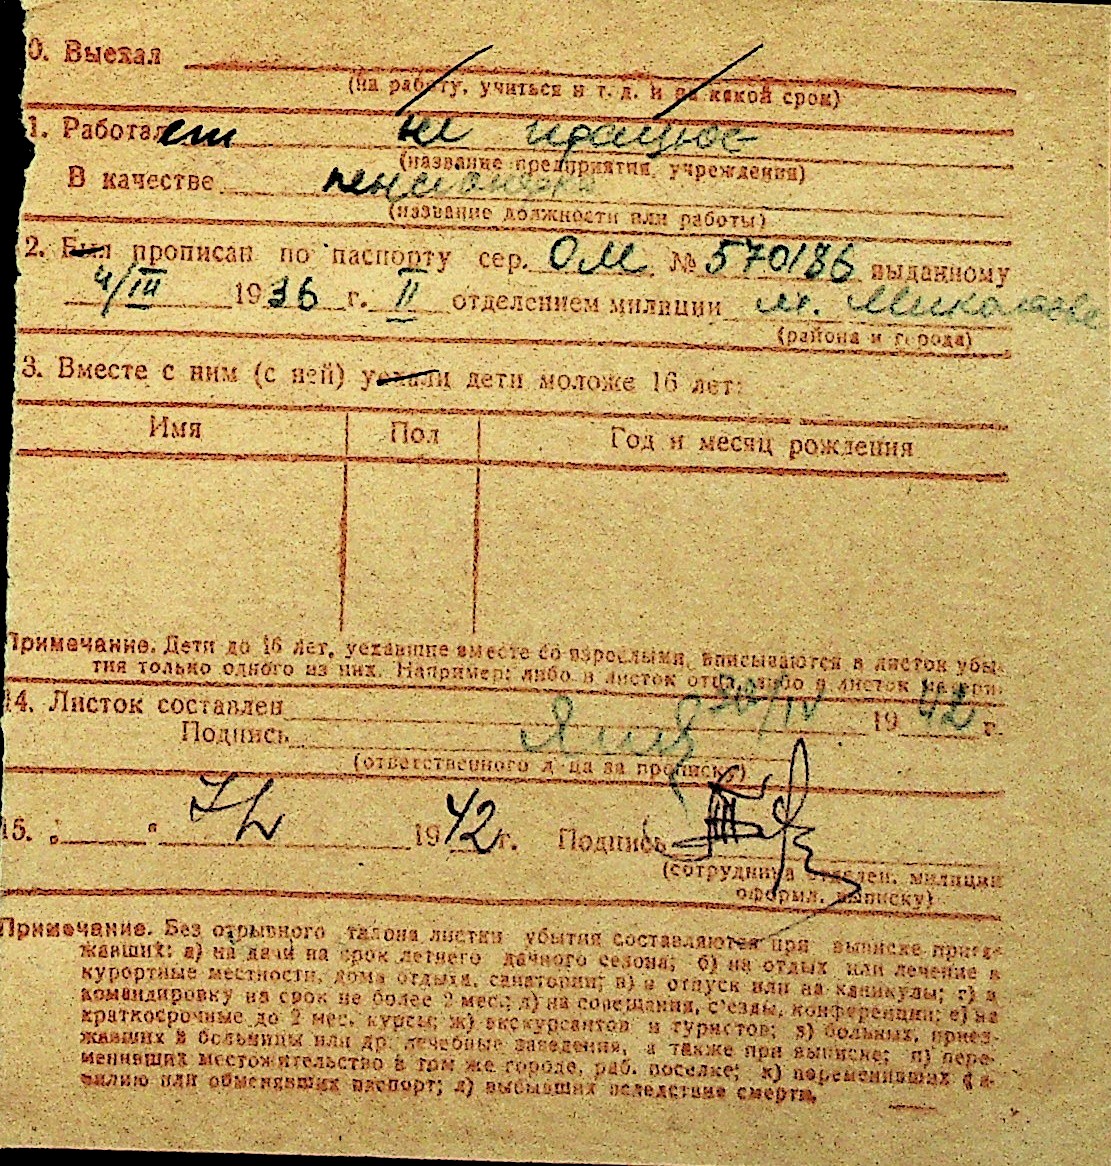 0. Выехал
(на работу, учиться и т. д. и на какой срок)
1. Работает не працює
(название предприятия, учреждения)
В качестве пенсионерка
(название должности или работы)
2. Был прописан по паспорту сер. ОМ № 570186 выданному
4/III 1936 г. II отделением милиции м. Миколаєва
(района и города)
3. Вместе с ним (с ней) уехали дети моложе 16 лет:
Имя Пол Год и месяц рождения
Примечание. Дети до 16 лет, уехавшие вместе со взрослыми, вписываются в листок убы-
тия только одного из них. Например: либо в листок отца, либо в листок матери.
14. Листок составлен /IV 1942 г.
Подпись
(ответственного лица за прописку)
15. " " 1942 г. Подпись
(сотрудника отделен. милиции
оформл. выписку)
Примечание. Без отрывного талона листки убытия составляются при выписке приез-
жавших: а) на дачи на срок летнего дачного сезона; б) на отдых или лечение в
курортные местности, дома отдыха, санатории; в) в отпуск или на каникулы; г) в
командировку на срок не более 2 мес.; д) на совещания, с'езды, конференции; е) на
краткосрочные до 2 мес. курсы; ж) экскурсантов и туристов; з) больных, приез-
жавших в больницы или др. лечебные заведения, а также при выписке; и) пере-
менивших местожительство в том же городе, раб. поселке; к) переменивших фа-
милию или обменявших паспорт; л) выбывших вследствие смерти.